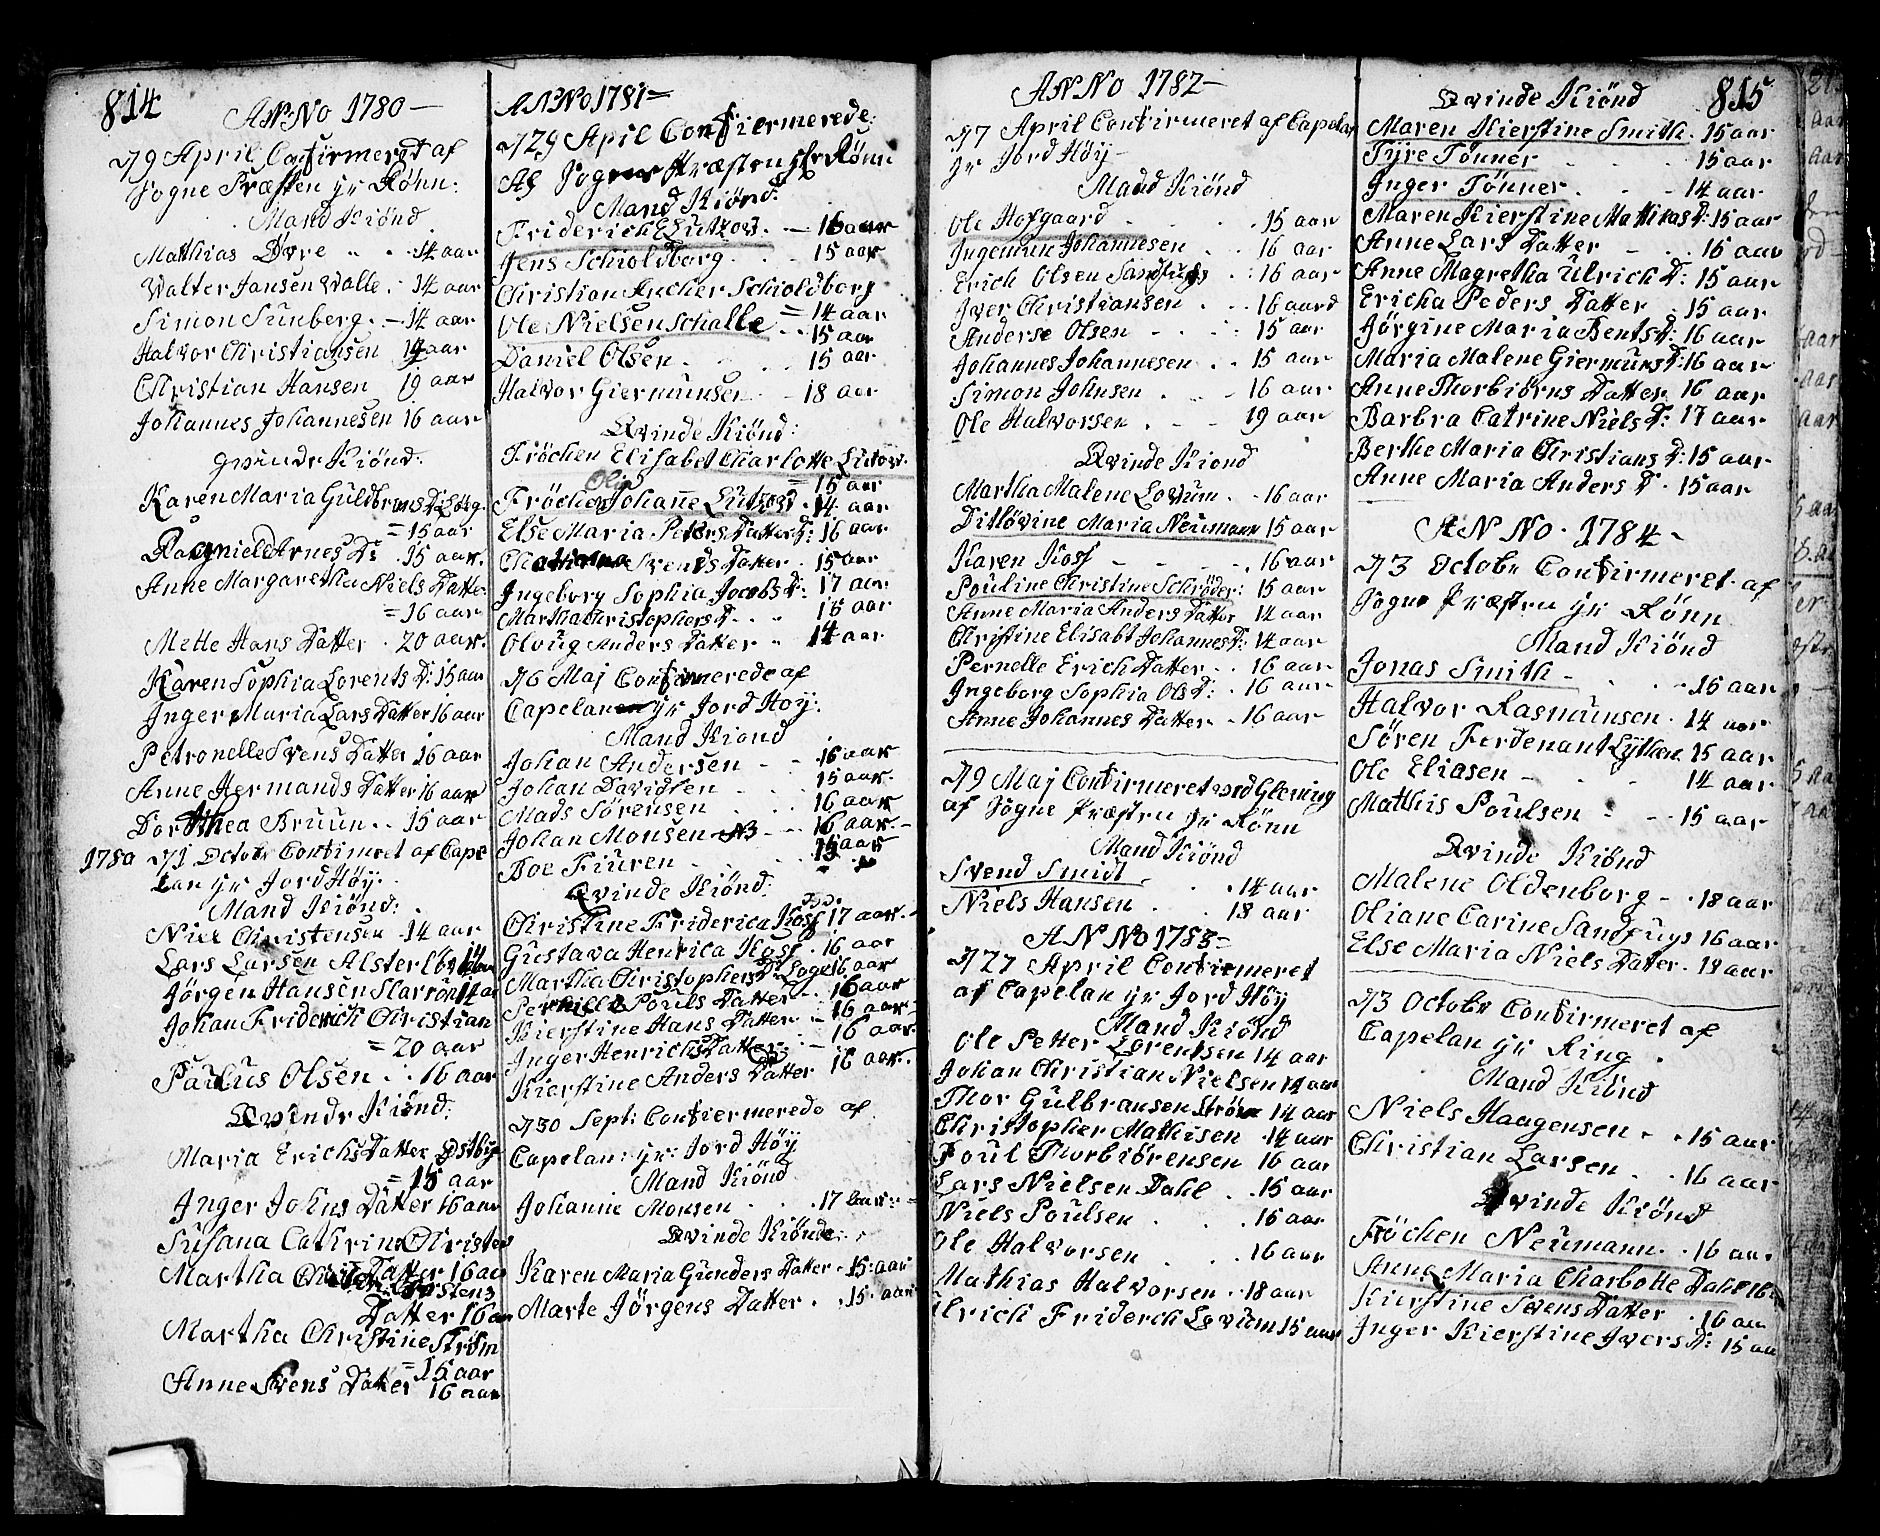 814
ANNo 1780
D 9 April Confirmeret af
Sogne Præsten Hr Rønn:
Mand Kiønd
Mathias Øvre 14 aar
Walter Jansen Walle 14 aar
Simon Sunberg 14 aar
Halvor Christiansen 19 aar
Christian Hansen 19 aar
Johannes Johannesen 16 aar
Qvinde Kiønd:
Karen Maria Guldbrans D:
= 15 aar
Ragnield Arnes D: 15 aar
Anne Margaretha Niels Datter
= 16 aar
Mette Hans Datter 20 aar
Karen Sophia Lorents D: 15 aar
Inger Maria Lars Datter 16 aar
Petronelle Svens Datter 16 aar
Anne Hermands Datter 16 aar
Dorthea Bruun 15 aar
1780 D 1 Octobr Confirmeret af Cape
lan Hr Jord Høy
Mand Kiønd:
Niel Christensen 14 aar
Lars Larsen 14
Jørgen Hansen 14 aar
Johan Friderich Christian
= 20 aar
Paulus Olsen 16 aar
Qvinde Kiønd:
Maria Erichs Datter Østbye
= 15 aar
Inger Johns Datter 16 aar
Susana Cathrina Christen
Datter 16 aar
Martha Christens
Datter 16 aar
Martha Christine Strøm
= 15 aar
Anne Svens Datter 16 aar
ANNo 1781
D 29 April Confiermerede
Af Sogne Præsten Hr Rønn
Mand Kiønd:
Friderich Lützow 16 aar
Jens Schioldborg 15 aar
Christian Ancher Schioldborg
= 14 aar
Ole Nielsen Schalle 15 aar
Daniel Olsen 15 aar
Halvor Giermunsen 18 aar
Qvinde Kiønd:
Frøchen Elisabet Charlotte Lutow
= 15 aar
Frøchen Johane Lützow 14 aar
Else Maria Peters Datter D: 16 aar
Svends Datter 15 aar
Ingeborg Sophia Jacobs D: 17 aar
Martha Christophers D 15 aar
Oloug Anders Datter 14 aar
D 6 Maj Confirmerede af
Capelan Hr Jord Høy:
Mand Kiønd
Johan Andersen 16 aar
Johan Davidsen 15 aar
Mads Sørensen 16 aar
Johan Monsen 16 aar
Boe Fiuren 15 aar
Qvinde Kiønd:
Christine Friderica Koss 17 aar
Gustava Henrica Koss 16 aar
Martha Christophers D: Loge 16 aar
Pernille Pouls Datter 16 aar
Kierstine Hans Datter 16 aar
Inger Henrichs Datter 16 aar
Kierstine Anders Datter 16 aar
D 30 Sept: Confiermerede af
Capelan: Hr: Jord Høy
Mand Kiønd
Johanne Monsen 17 aar
Qvinde Kiønde:
Karen Maria Gunders Datter 15 aar
Marte Jörgens Datter 15 aar
ANNo 1782
D 7 April Confirmeret af Capelan
Hr Jord Høy
Mand Kiønd
Ole Hofgaard 15 aar
Ingemun Johannesen 16 aar
Erich Olsen Sandfugs 16 aar
Iver Christiansen 16 aard
Anderse Olsen 15 aar
Johannes Johannesen 15 aar
Simon Johnsen 16 aar
Ole Halvorsen 19 aar
Qvinde Kiønd
Martha Malene Lovum 16 aar
Ditlövine Maria Neumann 15 aar
Karen Koss 16 aar
Pouline Christine Schrøder: 15 aar
Anne Maria Anders Datter 14 aar
Christine Elisabt Johannes D: 14 aar
Pernelle Erich Datter 16 aar
Ingeborg Sophia Ols D: 16 aar
Anne Johannes Datter 16 aar
D 9 Maj Confirmeret ved Glening
af Sogne Præsten Hr Rønn
Mand Kiønd
Svend Smidt 14 aar
Niels Hansen 18 aar
ANNo 1783
D 27 April Confirmeret
af Capelan Hr Jord Høy
Mand Kiønd
Ole Petter Lorentsen 14 aar
Johan Christian Nielsen 14 aar
Thor Gulbransen Ström 14 aar
Christopher Mathisen 14 aar
Poul Thorbiörensen 16 aar
Lars Nielsen Dahl 15 aar
Niels Poulsen 15 aar
Ole Halvorsen 16 aar
Mathias Halvorsen 18 aar
Ulrich Friderch Lovum 15 aar
815
Qvinde Kiønd
Maren Kierstine Smith 15 aar
Tyre Tönner 15 aar
Inger Tönner 14 aar
Maren Kierstine Mathias D: 15 aar
Anne Lars Datter 15 aar
Anne Magretha Ulrich D: 15 aar
Ericha Peders Datter 15 aar
Jörgine Maria Bents D: 16 aar
Maria Malene Giermuns D: 16 aar
Anne Thorbiörns Datter 16 aar
Barbra Catrine Niels D: 17 aar
Berthe Maria Christians D: 15 aar
Anne Maria Anders D 15 aar
ANNo 1784
D 3 Octobr Confirmeret af
Sogne Præsten Hr Rønn
Mand Kiønd
Jonas Smith 15 aar
Halvor Rasmunsen 14 aar
Sören Ferdenant Lythen 15 aar
Ole Eliasen 14 aar
Mathis Poulsen 15 aar
Qvinde Kiønd
Malene Oldenborg 18 aar
Oliane Carine Sandfugs 16 aar
Else Maria Niels Datter 18 aar
D 3 Octobr Confirmeret af
Capelan Hr Ring
Mand Kiønd
Niels Haagensen 15 aar
Christian Larsen 16 aar
Qvinde Kiønd
Fröchen Neumann 16 aar
Anne Maria Charlotte Dahl 16
Kierstine Svens Datter 16 aar
Inger Kierstine Ivers D: 15 aar